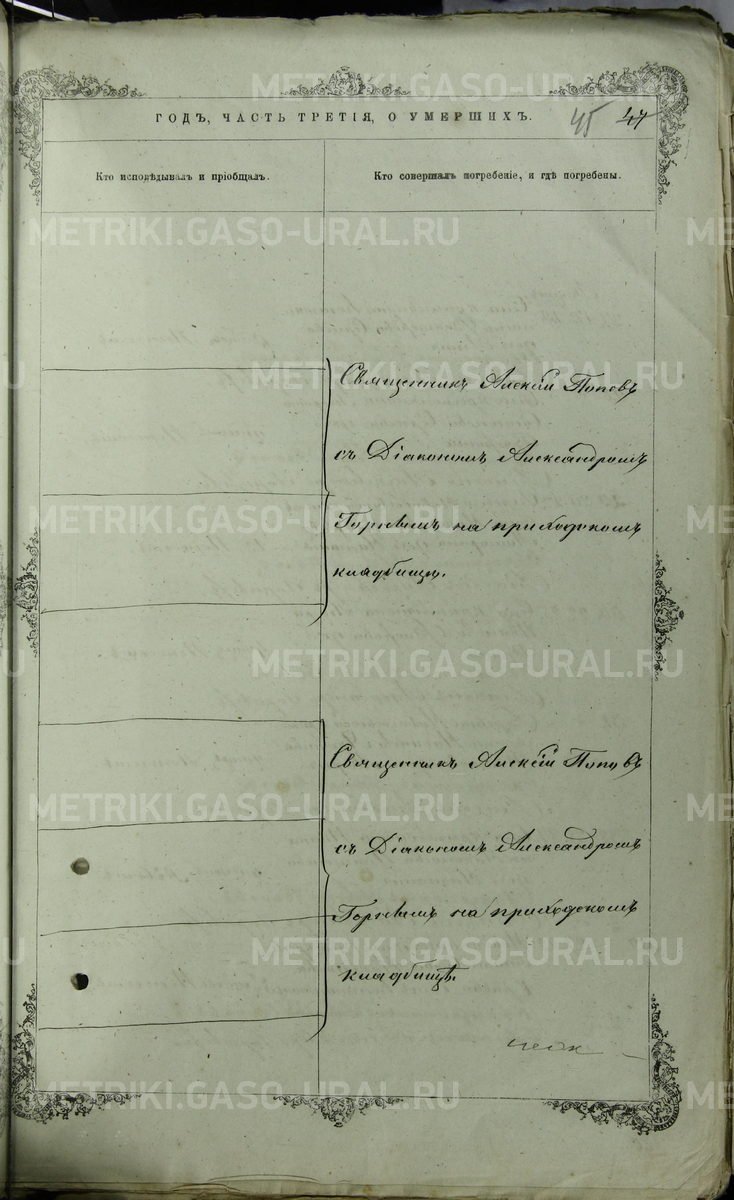 METRIKI.GASO-URAL.RU
ГОДЪ, ЧАСТЬ ТРЕТІЯ, О УМЕРШИХЪ.
45 47
Кто исповѣдывалъ и пріобщалъ.
Кто совершалъ погребеніе, и гдѣ погребены.
Священникъ Алексій Поповъ
съ Діакономъ Александромъ
на приходскомъ
кладбищѣ.
Священникъ Алексій Поповъ
съ Діакономъ Александромъ
на приходскомъ
кладбищѣ.